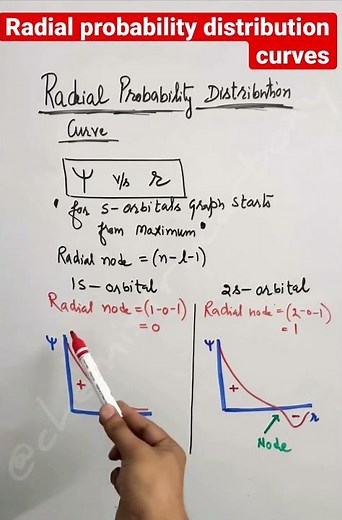 Radial probability distribution
curves
Radial Probability Distribution
Curve
Ψ v/s r
• for s-orbitals graph starts
from maximum •
Radial node = (n-l-1)
1s-orbital
Radial node = (1-0-1)
= 0
Ψ
+
2s-orbital
Radial node = (2-0-1)
= 1
Ψ
+
-
r
Node